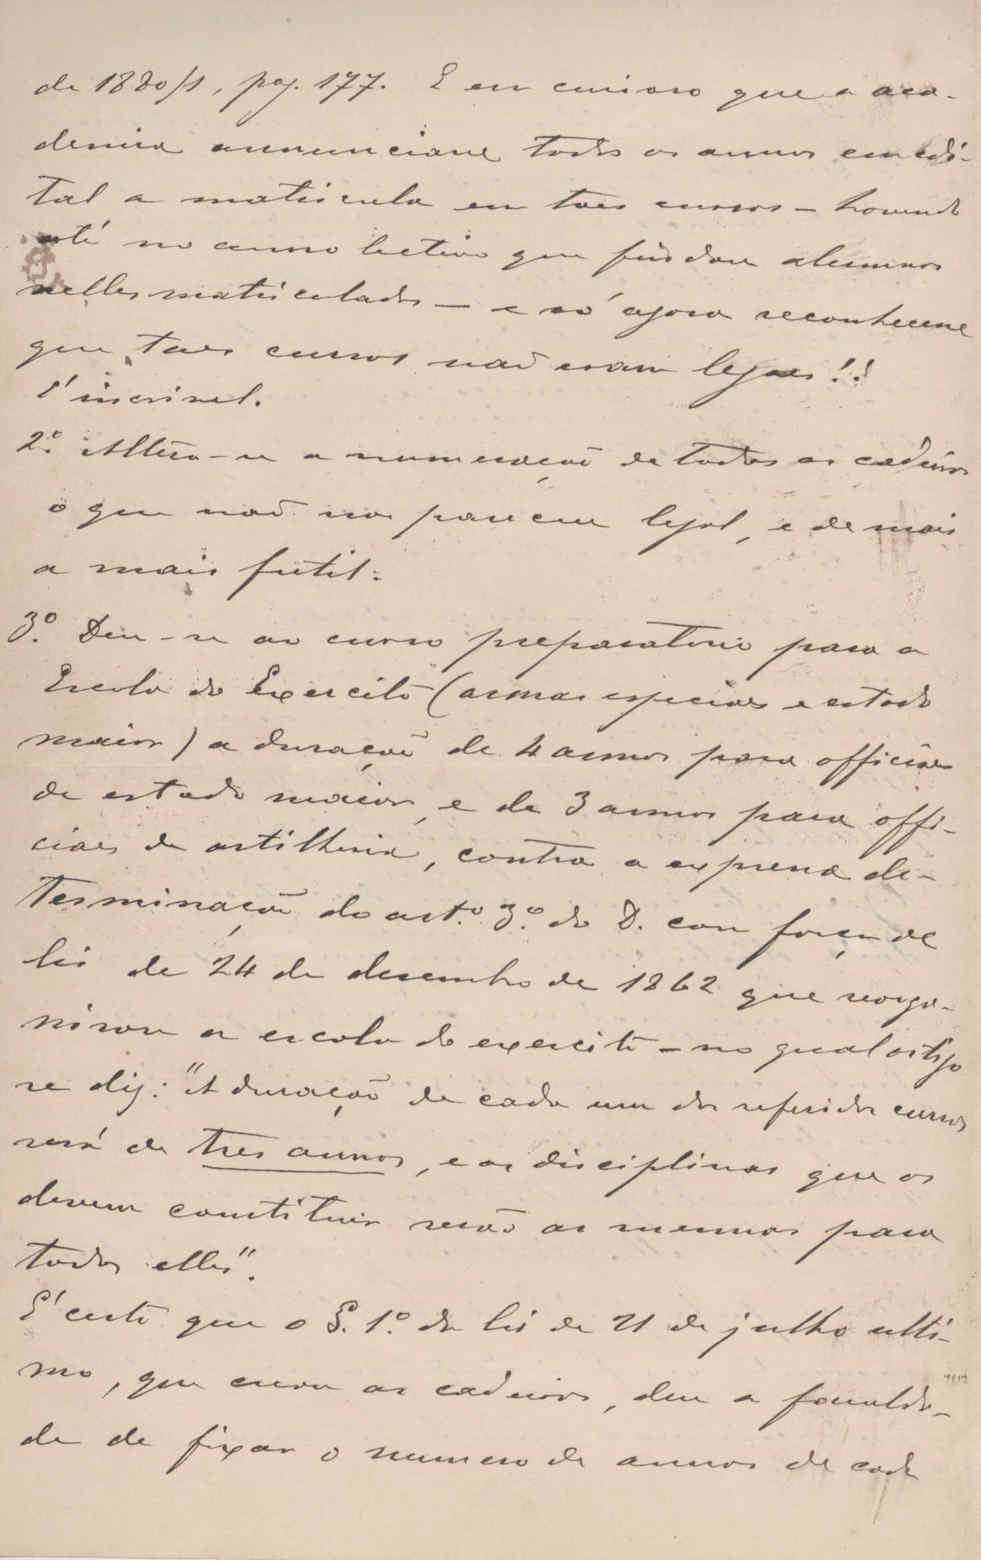 de 1880/1, pag. 177. E em curioso que a aca-
demia annunciasse todos os annos em edi-
tal a matricula em taes cursos – havendo
até no anno lectivo que findou alumnos
nelles matriculados – e só agora reconhecesse
que taes cursos não eram legaes!!
É incrivel.
2.º Altera-se a numeração de todas as cadeiras
o que não nos parece legal, e de mais
a mais futil.
3.º Deu-se ao curso preparatorio para a
Escola do Exercito (armas especiaes e estado
maior) a duração de 4 annos para officiaes
de estado maior, e de 3 annos para offi-
ciaes de artilheria, contra a expressa de-
terminação do art.º 3.º do D. com força de
lei de 24 de desembro de 1862 que reorga-
nisou a escola do exercito – no qual artigo
se diz: "A duração de cada um dos referidos cursos
será de tres annos, e as disciplinas que os
devem constituir serão as mesmas para
todos elles".
É certo que o §. 1.º da lei de 21 de julho ulti-
mo, que creou as cadeiras, deu a faculda-
de de fixar o numero de annos de cada